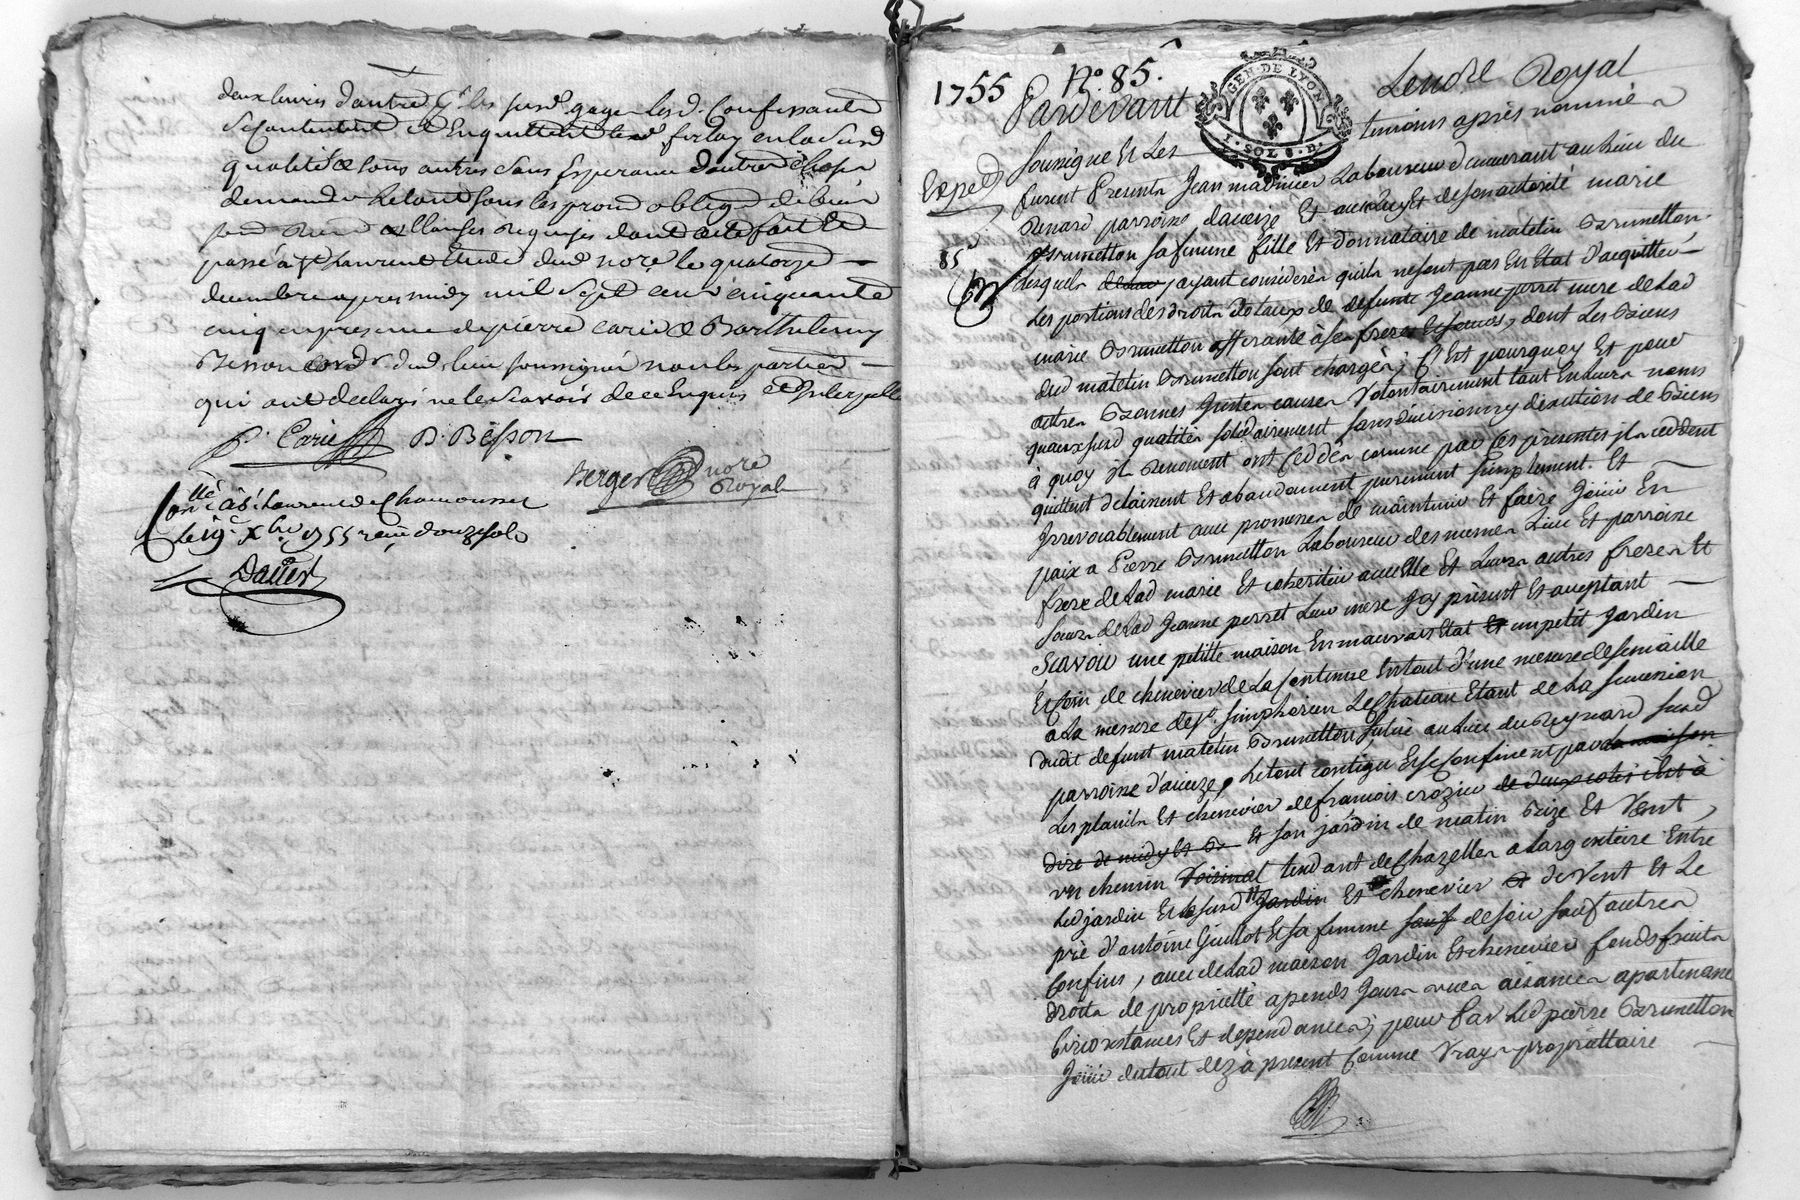 deux livres d'autre
se contentent et en quittent led. ferlay en lad. susd
qualité & tous autres sans Esperance d'autre chose
demander Letout sous les prom oblig de biens
passé à St Laurent Etude dud nore le quatorze
decembre apres midy mil sept cent cinquante
cinq en presence de pierre carié & Barthelemy
Besson dud. lieu soussignés non les parties
qui ont declaré ne le scavoir de ce Enquis Et Interpellé
P. Carié B. Besson
Berger nore
Royal
Conllé à St Laurent de Chamousset
le 19e Xbre 1755 reçu douze sols
Dalier
1755 No. 85.
GEN. DE LYON
1. SOL 8. D.
Pardevant Le nore Royal
soussigné Et Les temoins après nommés
Exped
furent Presents Jean mathieu Laboureur demeurant au lieu du
Renard parroisse daveize Et de son autorité marie
Brunetton sa femme fille Et donnataire de matelin Brunetton
85
Lesquels ayant considerés quils ne sont pas En Etat d'acquitter
Les portions des droits de defunte Jeanne perret mere de lad
marie Brunetton afferante à ses freres Et soeurs, dont Les Biens
dud matelin Brunetton sont chargés; C'Est pourquoy Et pour
autres Bonnes Justes causes Volontairement tant En leurs noms
quaux susd qualités solidairement sans division ny discution de Biens
à quoy ils Renoncent ont ceddés comme par ces présentes ils ceddent
quittent delaissent Et abandonnent purement simplement. Et
Irrevocablement avec promesses de maintenir Et faire Jouir En
paix a Pierre Brunetton Laboureur des memes Lieu Et parroisse
frere de Lad marie Et coheritier avec Elle Et Leurs autres freres Et
soeurs de Lad Jeanne perret Leur mere Icy présent Et acceptant
Scavoir une petitte maison En mauvais Etat Et un petit Jardin
Et coin de chenevier de La contenue En tout d'une mesure de semaille
a La mesure de St. simphorien Le Chateau Etant de La succession
dudit defunt matelin Brunetton situé au Lieu du Reynard susd
parroisse d'aveize, Le tout contigu Et se Confinent par la maison
Les plaits Et chenevier de francois crozier de deux cotés c'est à
dire de midy Et Bi Et son jardin de matin Bize Et Vent,
un chemin Voisinal tendant de Chazelles a Largentiere Entre
Led jardin Et le susd Jardin Et chenevier de Vent Et Le
pré d'antoine Guillot Et sa femme sauf de soir sauf autres
Confins, avec de Lad maison Jardin Et chenevier fonds fruits
droits de proprietté apends Jours vues aisances apartenances
Circonstances Et dependances; pour Par Led pierre Brunetton
Jouir du tout dez à present Comme Vrays propriettaire